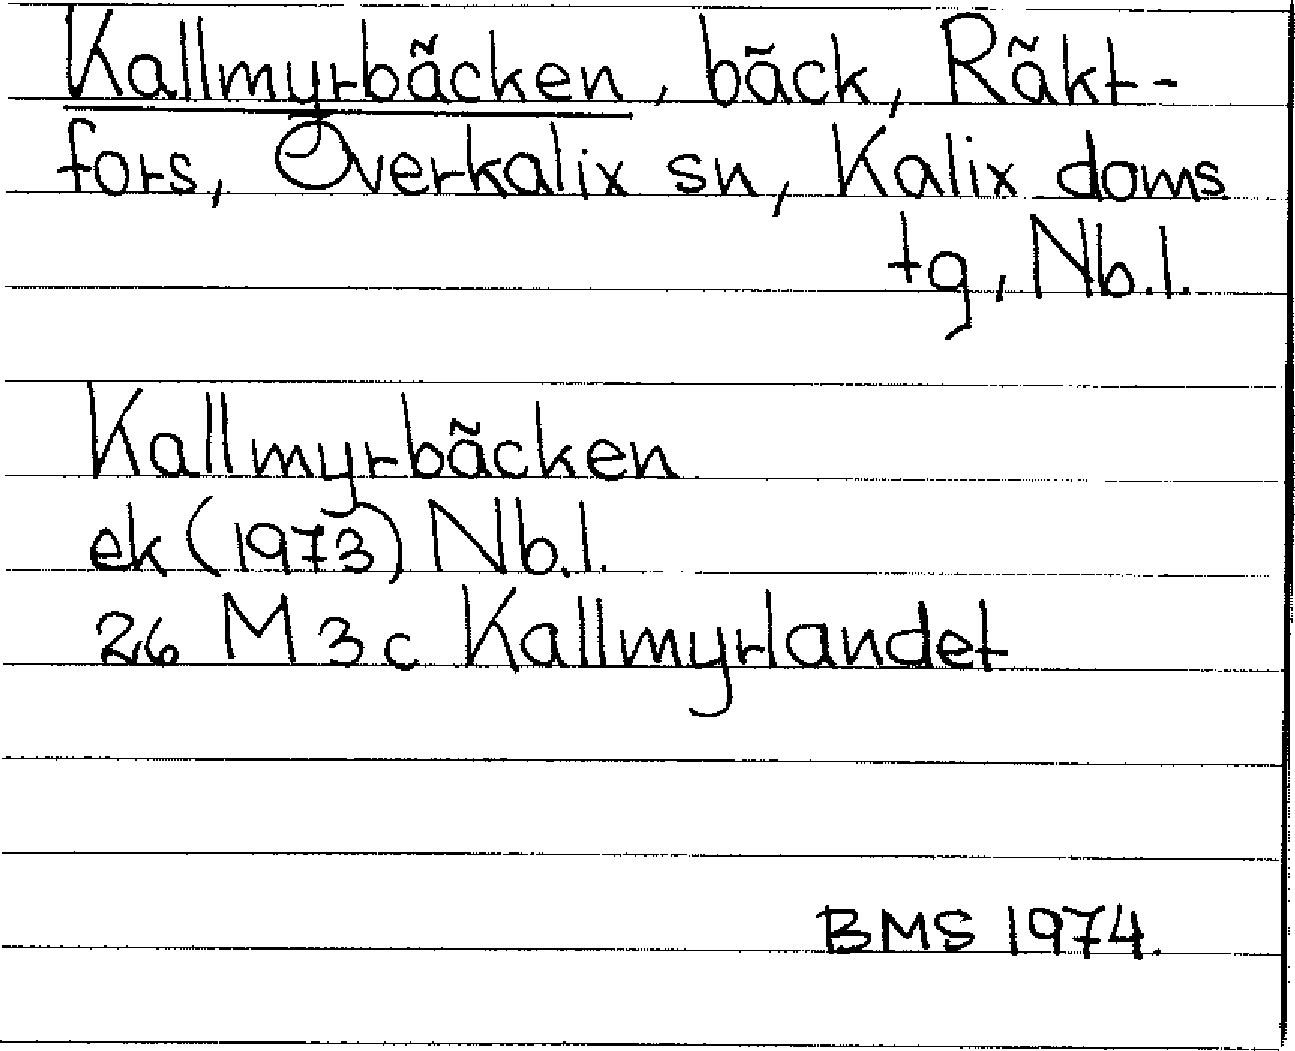 Kallmyrbäcken, bäck, Räkt-
fors, Överkalix sn, Kalix doms
tg, Nb.l.
Kallmyrbäcken
ek (1973) Nb.l.
26 M 3c Kallmyrlandet
BMS 1974.